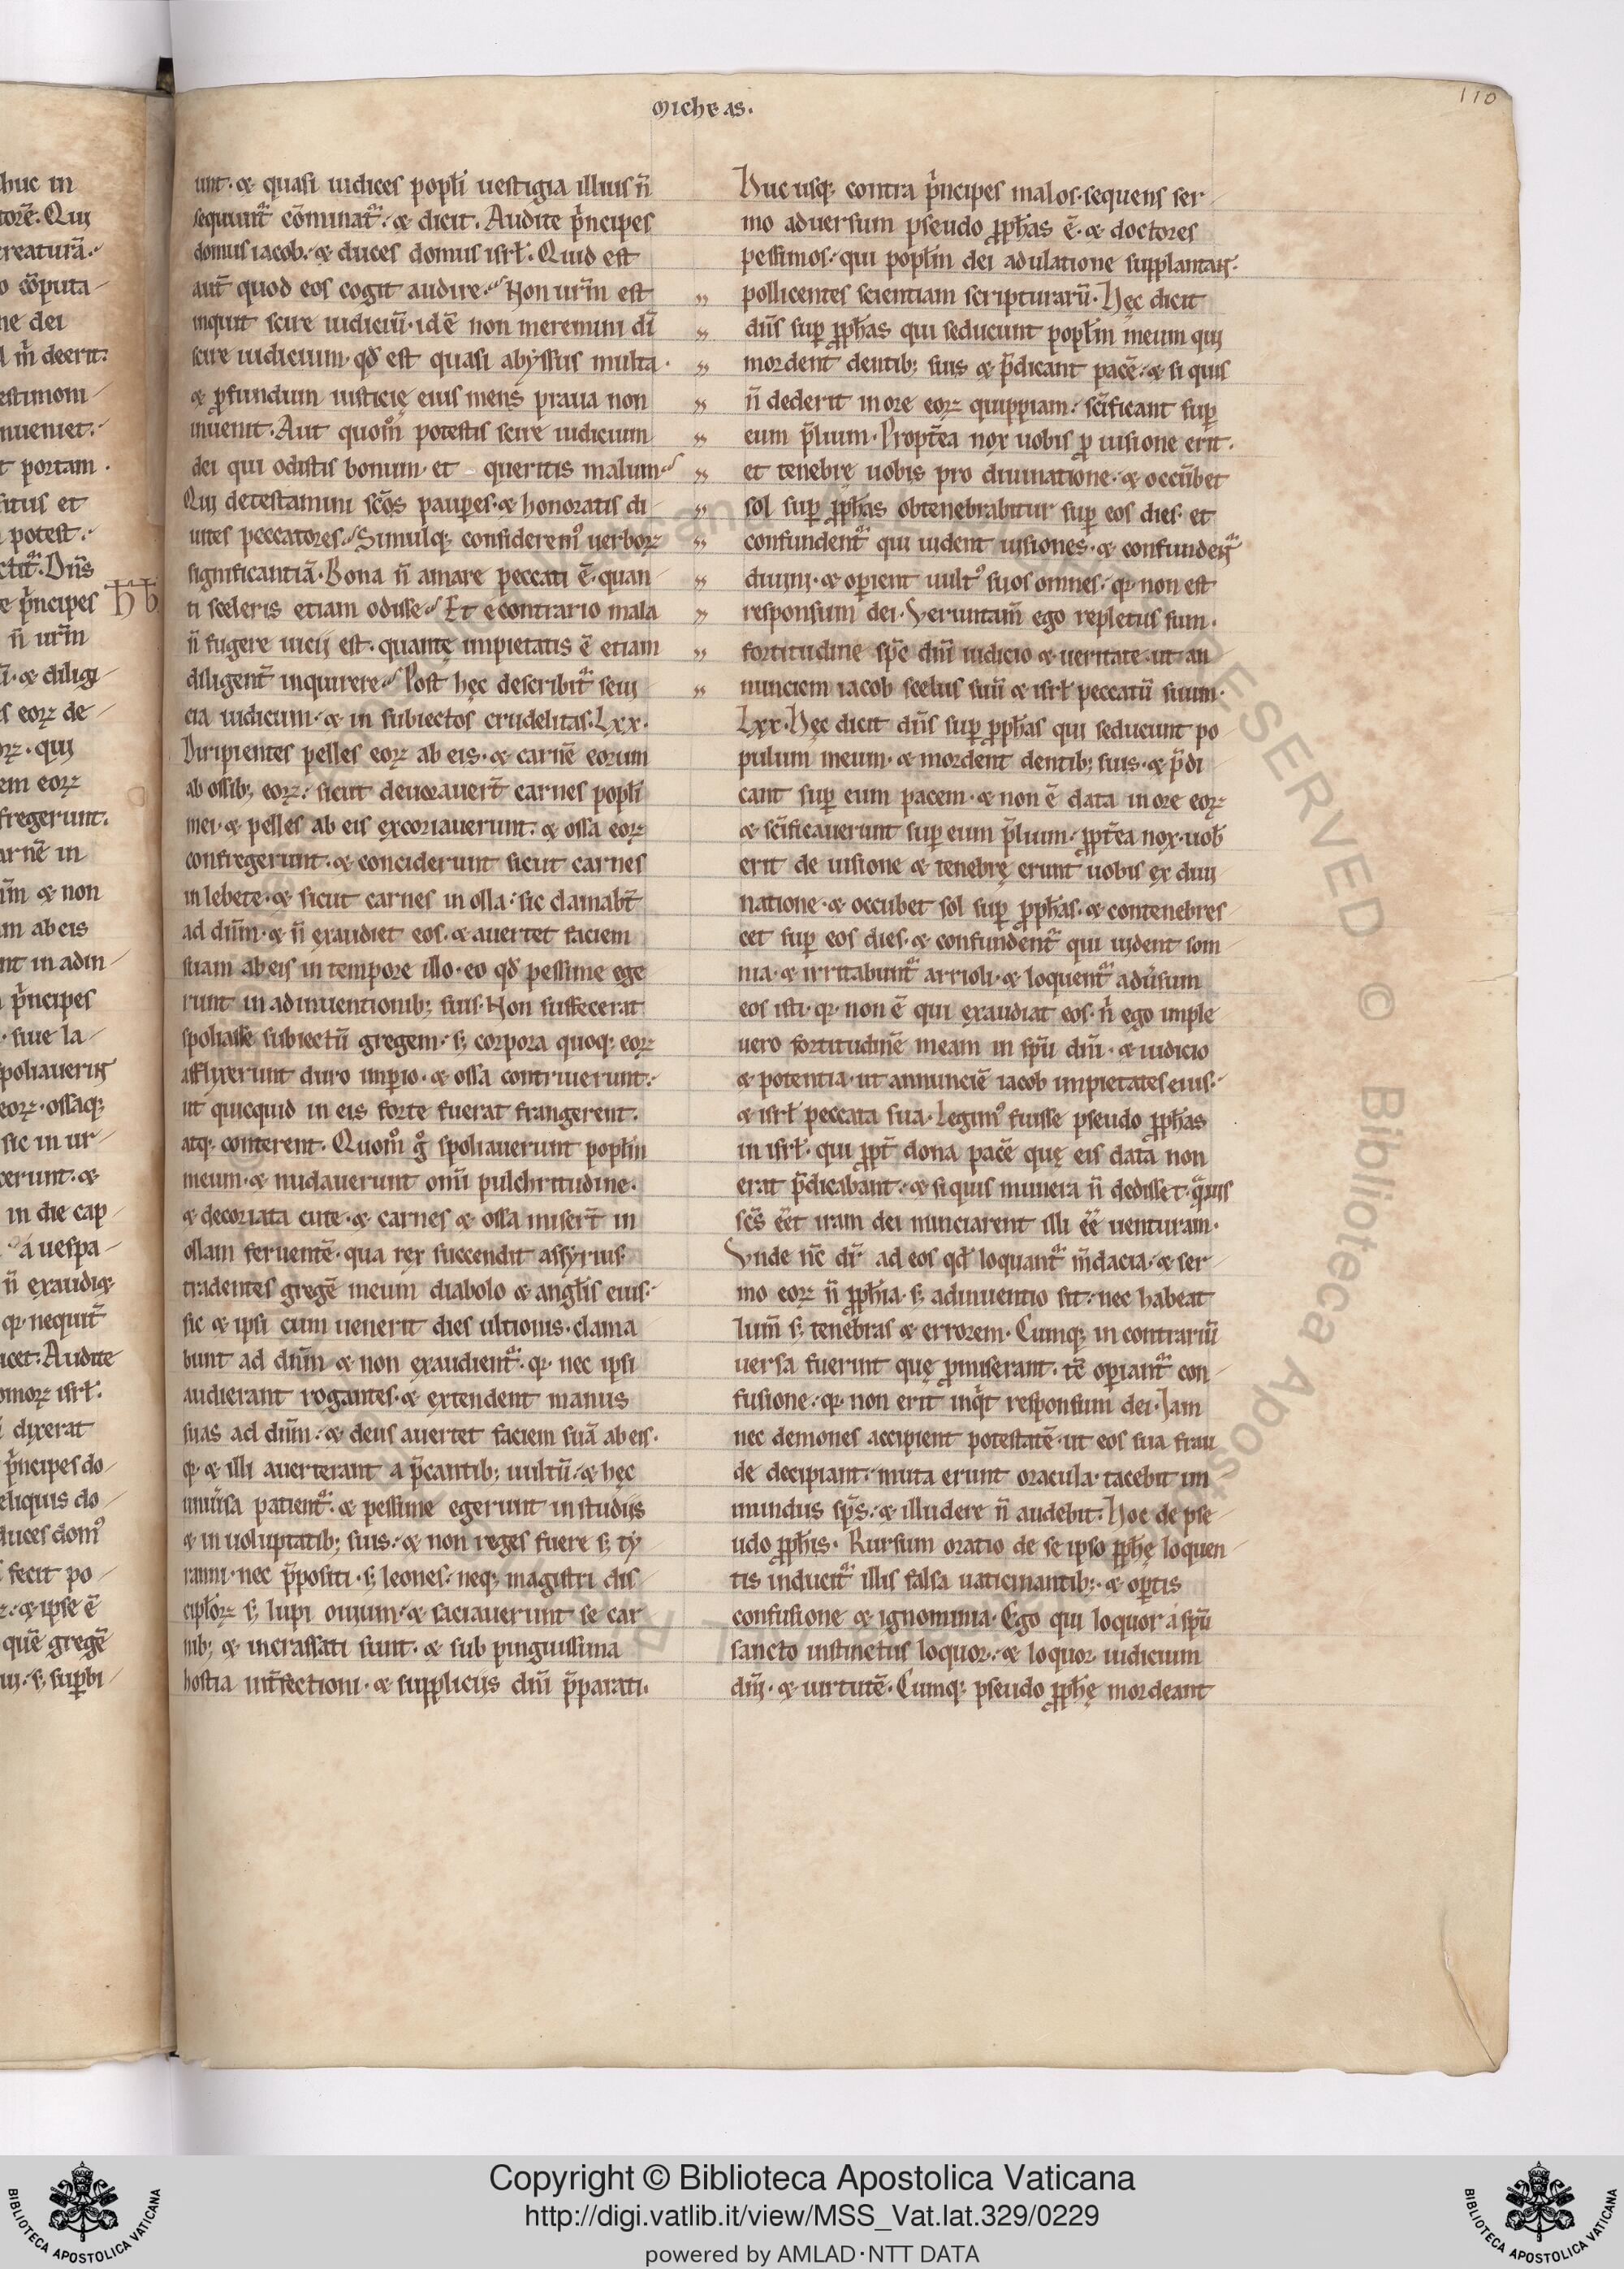 Micheas.
110
unt. & quasi iudices popłi uestigia illius ñ
sequunt᷒ cõminat᷒. & dicit. Audite p̃ncipes
domus iacob. & duces domus isrł. Quid est
aut̃ quod eos cogit audire. Non ur̃m est
inquit scire iudiciũ. id ẽ non meremini dĩ
scire iudicium. qđ est quasi abyssus multa.
& ꝓfundum iusticię eius mens praua non
inuenit. Aut quom̊ potestis scire iudicium
dei qui odistis bonum. et queritis malum.
Qui detestamini sc̃os pauꝑes. & honoratis di
uites peccatores. Simulq; considerem᷒ uerboꝝ
significantiã. Bona ñ amare peccati ẽ. quan
ti sceleris etiam odisse. Et e contrario mala
ñ fugere uicij est. quantę impietatis ẽ etiam
diligent̃ inquirere. Post hęc describit᷒ seui
cia iudicum. & in subiectos crudelitas. Lxx.
Diripientes pelles eoꝝ ab eis. & carnẽ eorum
ab ossib; eoꝝ. sicut deuorauer̃t carnes popłi
mei. & pelles ab eis excoriauerunt. & ossa eoꝝ
confregerunt. & conciderunt sicut carnes
in lebete. & sicut carnes in olla. sic clamabt̃
ad dñm. & ñ exaudiet eos. & auertet faciem
suam ab eis in tempore illo. eo qđ pessime ege
runt in adinuentionib; suis. Non suffecerat
spoliasse subiectũ gregem. s; corpora quoq; eoꝝ
afflixerunt duro imꝑio. & ossa contriuerunt.
ut quicquid in eis forte fuerat frangerent.
atq; conterent. Quom̊ g̊ spoliauerunt popłm
meum. & nudauerunt omĩ pulchritudine.
& decoriata cute. & carnes & ossa miser̃t in
ollam feruentẽ. qua rex succendit assyrius.
tradentes gregẽ meum diabolo & angłis eius.
sic & ipsi cum uenerit dies ultionis. clama
bunt ad dñm & non exaudient᷒. q; nec ipsi
audierant rogantes. & extendent manus
suas ad dñm. & deus auertet faciem suã ab eis.
q; & illi auerterant a p̃cantib; uultũ. & hęc
uniũsa patient᷒. & pessime egerunt in studijs
& in uoluptatib; suis. & non reges fuere s; ty
ranni. nec p̃positi. s; leones. neq; magistri dis
cipłoꝝ s; lupi ouium. & saciauerunt se car
nib; & incrassati sunt. & sub pinguissima
hostia int̃fectioni. & supplicijs diuĩ p̃parati.
Huc usq; contra p̃ncipes malos. sequens ser
mo aduersum pseudo ꝓphãs ẽ. & doctores
pessimos. qui popłm dei adulatione supplantant.
pollicentes scientiam scripturarũ. Hęc dicit
dñs suꝑ ꝓphãs qui seducunt popłm meum qui
mordent dentib; suis & p̃dicant pacẽ. & si quis
ñ dederit in ore eoꝝ quippiam. sc̃ificant suꝑ
eum p̃lium. Propt̃ea nox uobis ꝓ uisione erit.
et tenebrę uobis pro diuinatione. & occũbet
sol suꝑ ꝓphãs obtenebrabitur suꝑ eos dies. et
confundent᷒ qui uident uisiones. & confundent᷒
diuini. & oꝑient uult᷒ suos omnes. q; non est
responsum dei. Veruntam̃ ego repletus sum.
fortitudine sp̃c dñi iudicio & ueritate. ut an
nunciem iacob scelus suũ & isrł peccatũ suum.
Lxx. Hęc dicit dñs suꝑ ꝓphãs qui seducunt po
pulum meum. & mordent dentib; suis. & p̃di
cant suꝑ eum pacem. & non ẽ data in ore eoꝝ
& sc̃ificauerunt suꝑ eum p̃lium. ꝓpt̃ea nox. uob̃
erit de uisione & tenebrę erunt uobis ex diui
natione. & occubet sol suꝑ ꝓphãs. & contenebres
cet suꝑ eos dies. & confundent᷒ qui uident som
nia. & irritabunt᷒ arrioli. & loquent᷒ adũsum
eos isti. q; non ẽ qui exaudiat eos. ñ ego imple
uero fortitudinẽ meam in sp̃u dñi. & iudicio
& potentia. ut annunciẽ iacob impietates eius.
& isrł peccata sua. Legim᷒ fuisse pseudo ꝓphãs
in isrł. qui ꝓpt̃ dona pacẽ quę eis data non
erat p̃dicabant. & si quis munera ñ dedisset. q̃uis
sc̃s ẽet iram dei nunciarent illi ẽẽ uenturam.
Vnde nc̃ dr̃ ad eos qđ loquant᷒ m̃dacia. & ser
mo eoꝝ ñ ꝓphĩa. s; adinuentio sit. nec habeat
lum̃ s; tenebras & errorem. Cumq; in contrariũ
uersa fuerint quę ꝓmiserant. tc̃ oꝑiant᷒ con
fusione. q; non erit inq̃t responsum dei. Jam
nec demones accipient potestatẽ. ut eos sua frau
de decipiant. muta erunt oracula. tacebit im
mundus sp̃s. & illudere ñ audebit. Hoc de pse
udo ꝓphĩs. Rursum oratio de se ipso ꝓphę̃ loquen
tis inducit᷒ illis falsa uaticinantib;. & oꝑtis
confusione & ignominia. Ego qui loquor á sp̃u
sancto instinctus loquor. & loquor iudicium
dñi. & uirtutẽ. Cumq; pseudo ꝓphę̃ mordeant
Copyright © Biblioteca Apostolica Vaticana
http://digi.vatlib.it/view/MSS_Vat.lat.329/0229
powered by AMLAD·NTT DATA
BIBLIOTECA APOSTOLICA VATICANA
BIBLIOTECA APOSTOLICA VATICANA